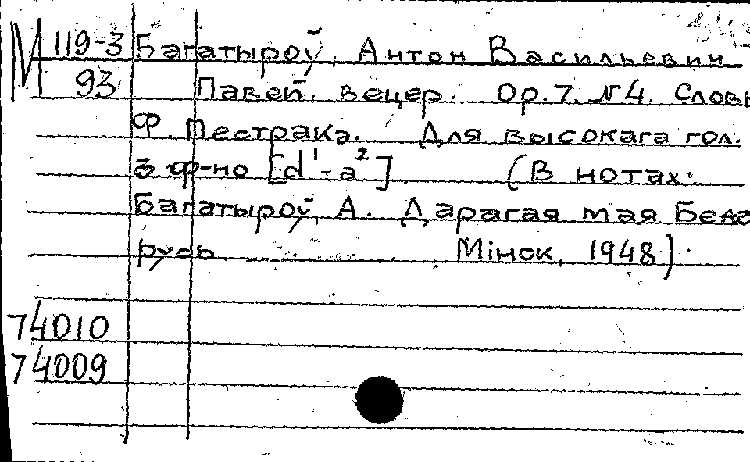 М 119-3 Багатыроў, Антон Васильевич
93 Павей, вецер. Ор.7. №4. Словы
Ф. Пестрака. Для высокага гол.
з ф-но [d¹-a²]. (В нотах:
Багатыроў, А. Дарагая мая Бела
русь Мінск, 1948).
74010
74009